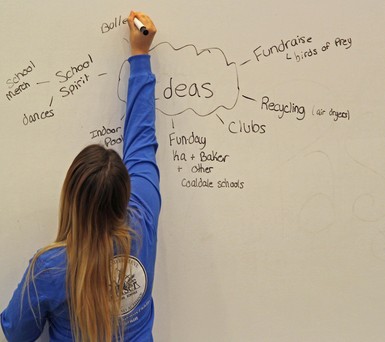 Balle
Fundraise
birds of Prey
School
Spirit
School
merch
dances
deas
Recycling (air dryer)
Clubs
Indoor
Pool
Funday
Ka + Baker
+ other
Coaldale schools